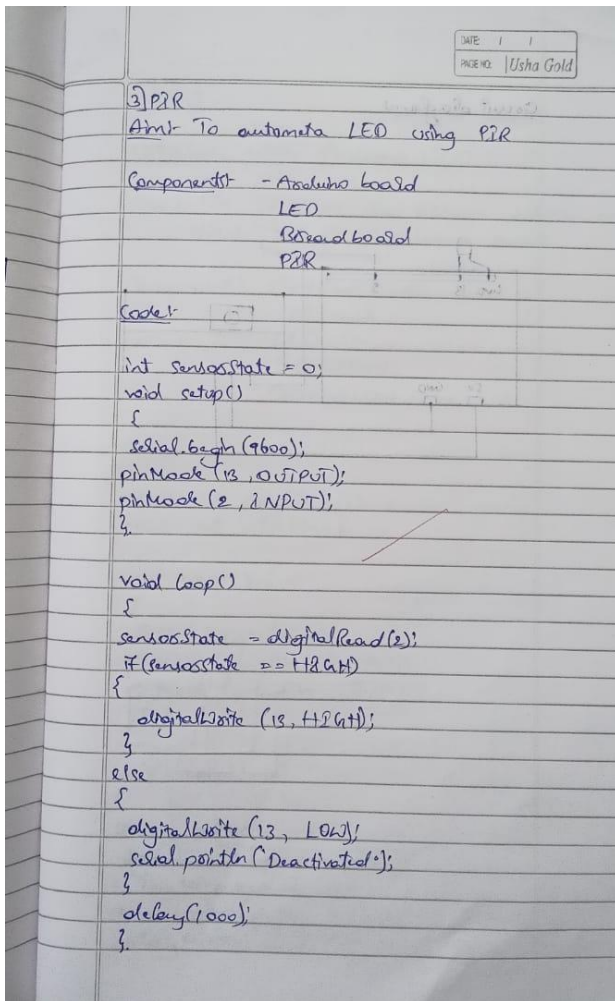 DATE: / /
PAGE NO: Usha Gold
3) PIR
Aim:- To automata LED using PIR
Components:- - Arduino board
LED
Breadboard
PIR
Code:-
int sensorState = 0;
void setup()
{
serial.begin(9600);
pinMode(13, OUTPUT);
pinMode(2, INPUT);
}
void loop()
{
sensorState = digitalRead(2);
if(sensorState == HIGH)
{
digitalWrite (13, HIGH);
}
else
{
digitalWrite (13, LOW);
serial.println("Deactivated");
}
delay(1000);
}